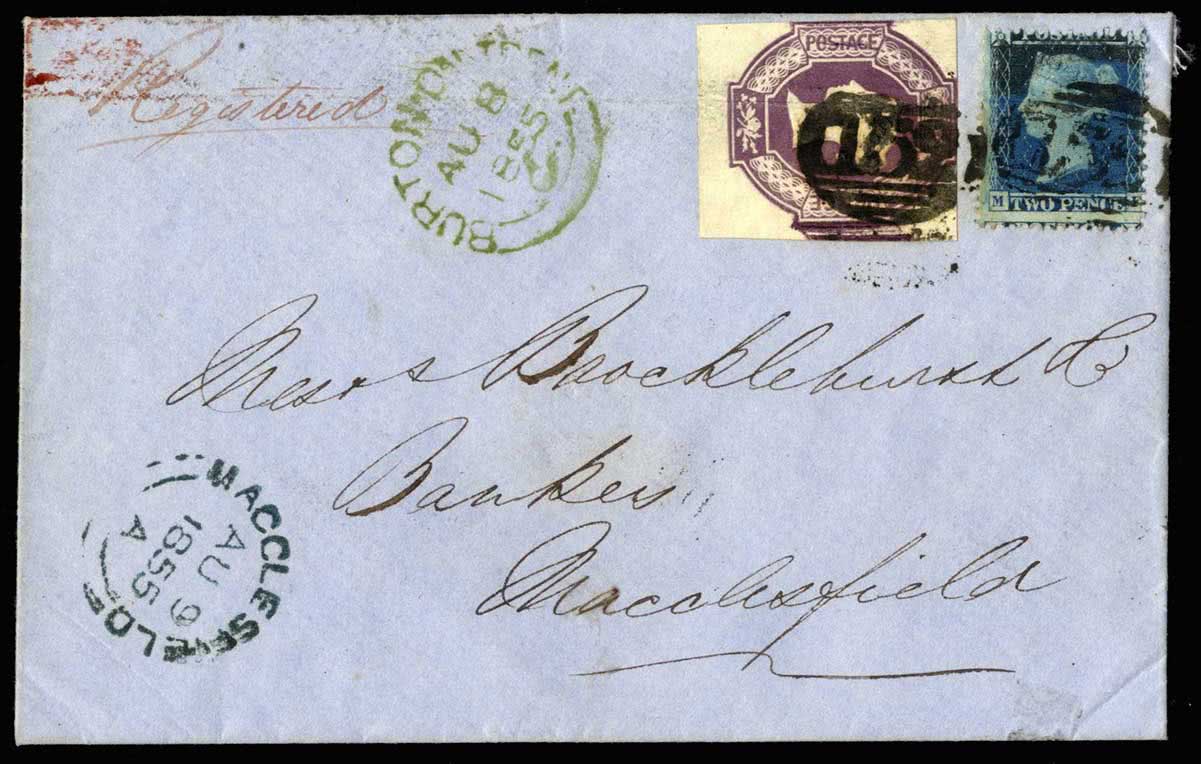 Registered
BURTON-ON-TRENT
AU 8
1855
C
POSTAGE
M TWO PENCE
Messrs Brocklehurst & C
Bankers
Macclesfield
MACCLESFIELD
AU 9
1855
A